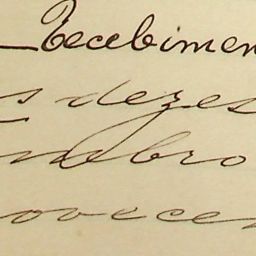 Recebimen
s dezes
mbro
ovecen